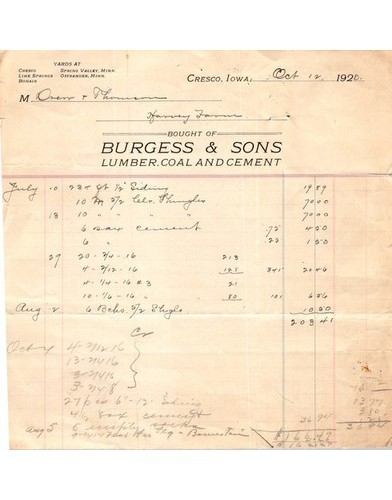 YARDS AT
CRESCO SPRING VALLEY, MINN.
LIME SPRINGS OSTRANDER, MINN.
BONAIR
CRESCO, IOWA, Oct 12 1920
M Drew & Thomson
Harvey Farm
BOUGHT OF
BURGESS & SONS
LUMBER, COAL AND CEMENT
July 10 234 ft 1/2" Siding 19 89
10 M 5/2 Clr. Shingles 70 00
18 10 " " " 70 00
6 sax cement .75 4 50
6 " 1 50
29 20-2/4-16 213
4-2/12-16 128 341 20 46
4-1/4-16 #3 21
10-1/6-16 " 80 101 6 56
Aug 2 6 Bchs 5/2 Shgls 10 50
203 41
Cr
Oct 4 4-2/12 16
13-2/4 16
3-2/4 16
3-2/4 8
27 pcs 6"-12' Siding
4 1/2 sax cement
Aug 5 6
36 94
$166.47